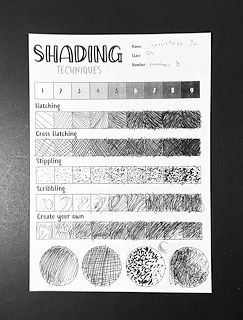 SHADING
TECHNIQUES
Name
Class
Number number
1 2 3 4 5 6 7 8 9
Hatching
Cross Hatching
Stippling
Scribbling
Create your own